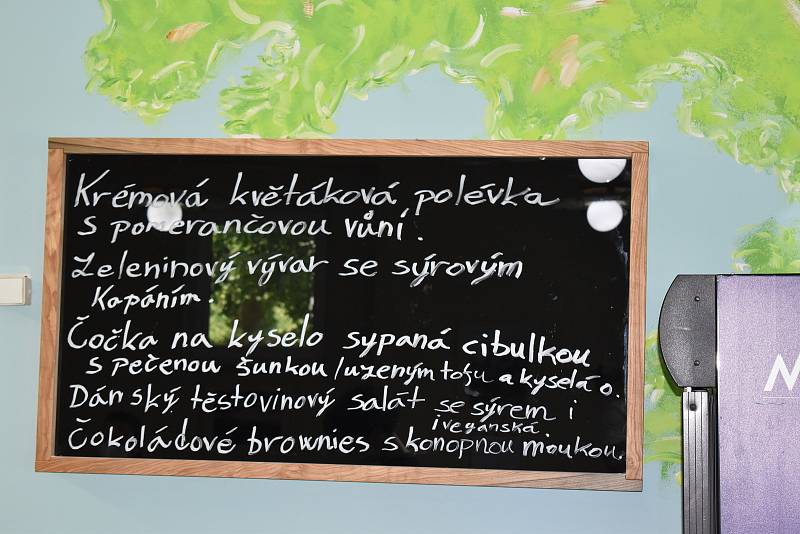 Krémová květáková polévka
s pomerančovou vůní.
Zeleninový vývar se sýrovým
Kapáním.
Čočka na kyselo sypaná cibulkou
s pečenou šunkou /uzeným tofu a kyselá o.
Dánský těstovinový salát se sýrem i
i veganská.
Čokoládové brownies s konopnou moukou.
N